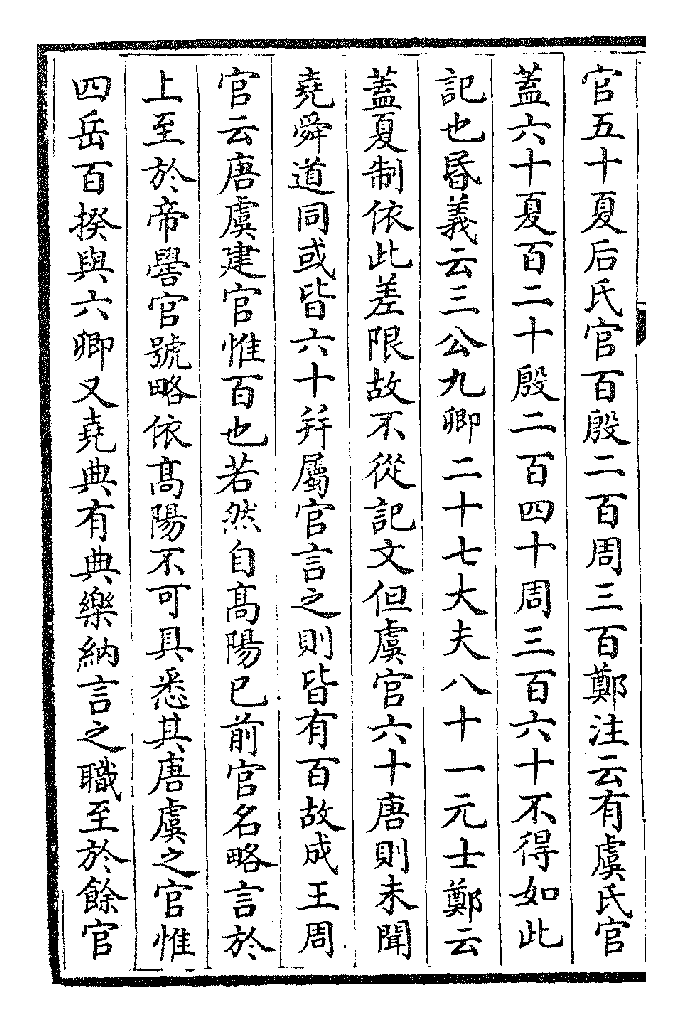 官五十夏后氏官百殷二百周三百鄭注云有虞氏官
蓋六十夏百二十殷二百四十周三百六十不得如此
記也昬義云三公九卿二十七大夫八十一元士鄭云
蓋夏制依此差限故不從記文但虞官六十唐則未聞
堯舜道同或皆六十并屬官言之則皆有百故成王周
官云唐虞建官惟百也若然自高陽已前官名略言於
上至於帝嚳官號略依高陽不可具悉其唐虞之官惟
四岳百揆與六卿又堯典有典樂納言之職至於餘官